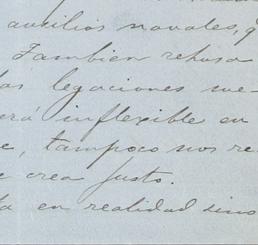 auxilios navales, q
Tambien rehusa
las legaciones me
erá inflexible en
e, tampoco nos re
e crea justo.
ta en realidad sino